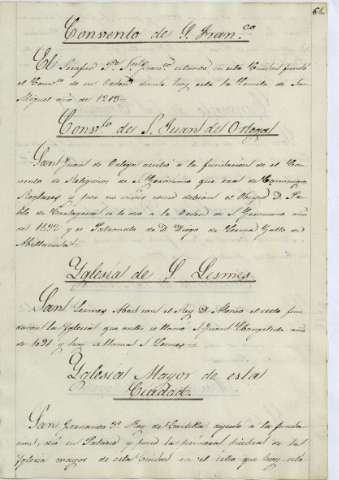 Convento de S. Fran.co
El Serafico P.e S.n Fran.co estando en esta Ciudad fundó
el Conv.to de su Orden donde hoy está la Hermita de San
Miguel año de 1213
Conv.to de S. Juan de Ortega
San Juan de Ortega asistió a la fundacion de el Con
vento de Religiosos de S. Geronimo que eran de Canonigos
Reglares y por no vivir como debian el Obispo D. Pa
blo de Cartagena lo dio a la Orden de S. Geronimo año
del 1432 y el Patronato de D. Diego de
Yglesia de S. Lesmes
San Lesmes Abad con el Rey D. Alonso el sexto fun
daron la Yglesia que antes se llamo S. Juan Evangelista año
de 1091 y hoy se llama S. Lesmes
Yglesia Mayor de esta
Ciudad.
San Fernando 3.º Rey de Castilla ayudó a la funda
cion, dió su Palacio y puso la primera piedra de la
Yglesia mayor de esta Ciudad en el sitio que hoy está